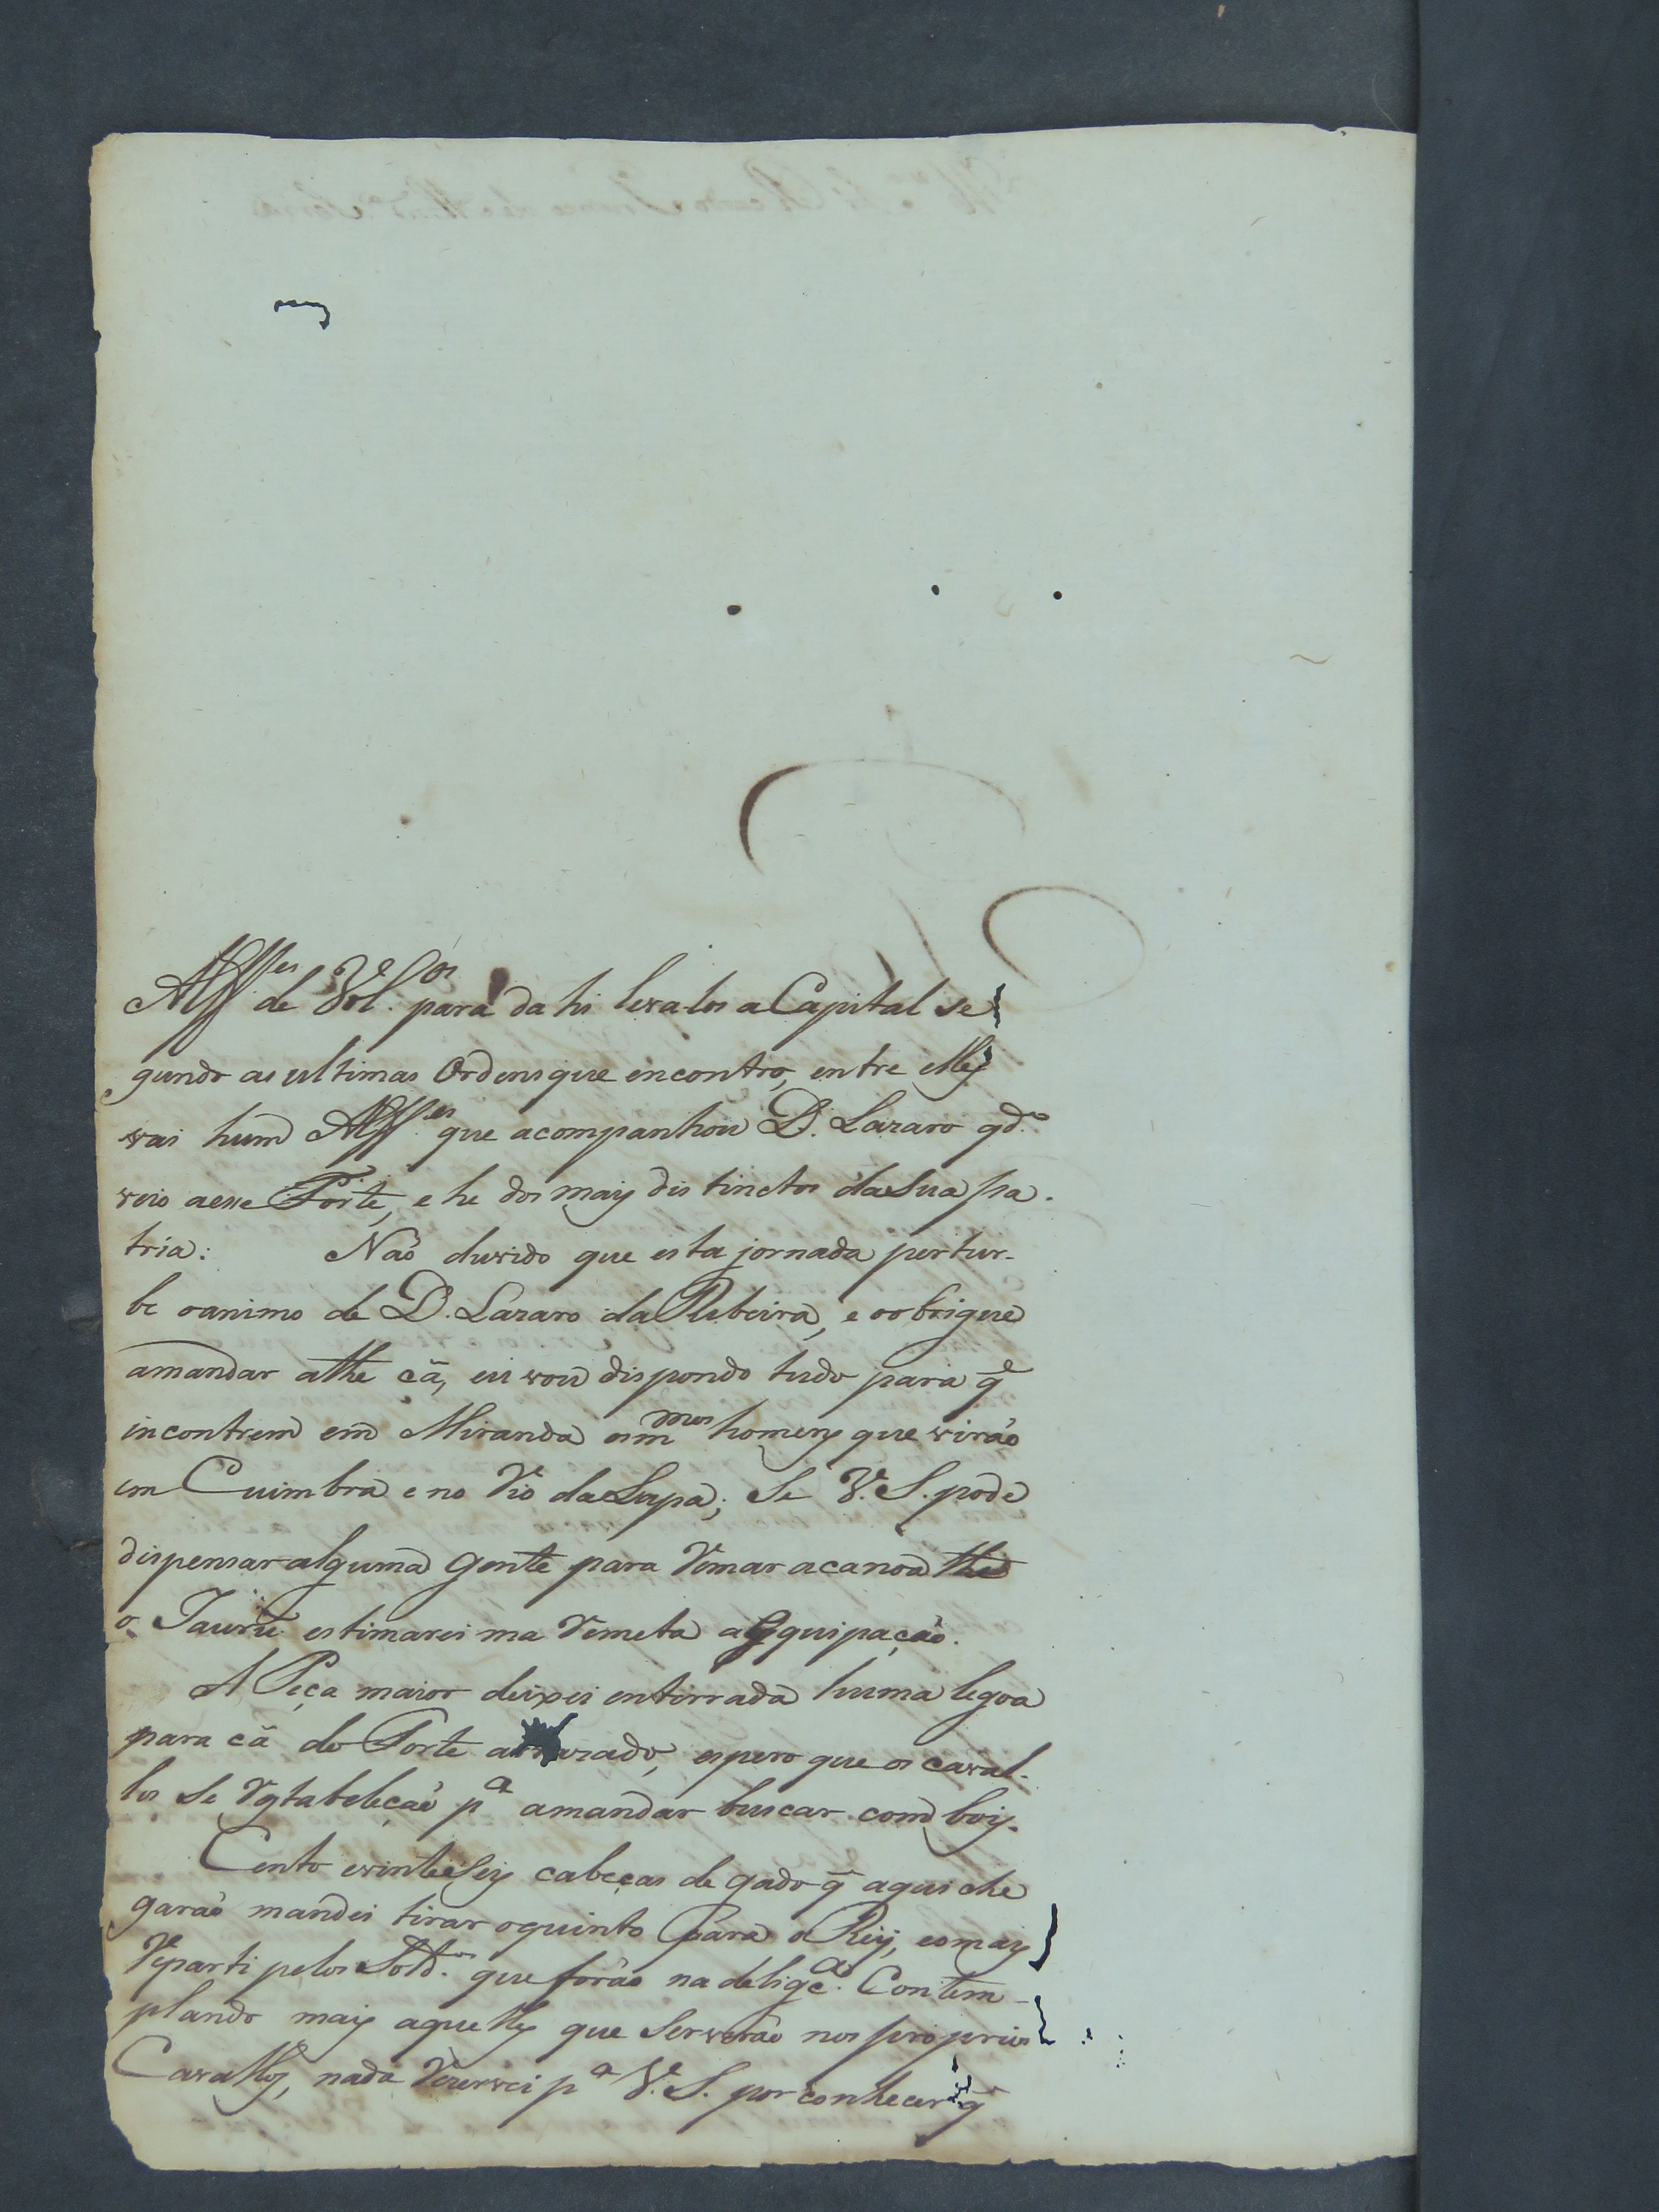 Alff.es de Vol.os para da hi leva los a Capital se
gundo as ultimas Ordens que encontro, entre elles
vai hum Alff.es que acompanhou D. Lazaro qd.o
veio a esse Forte, e he dos mais distinctos da Sua pa-
tria: Não duvido que esta jornada pertur-
be o animo de D. Lazaro da Ribeira, e o obrigue
amandar athe cã, eu vou dispondo tudo para q̃
incontrem em Miranda os m.mos homens que virão
em Cuimbra e no Rio da Lapa; Se V. S. pode
dispensar alguma gente para Remar a canoa the
o Taurũ estimarei ma Remeta a Equipação.
A Peça maior deixei entirrada huma legoa
para cã do Forte arrazado, espero que os caval-
los se Restabeleção p.a amandar buscar com bois.
Cento evinte e Seis cabeças de gado q̃ aqui che
garão mandei tirar o quinto para o Reij, eo mais
Reparti pelos Sold.os que forão na delig.ca Contem-
plando mais aquelles que Servirão nos proprios
Cavallos, nada Rezervei p.a V. S. por conhecer q̃